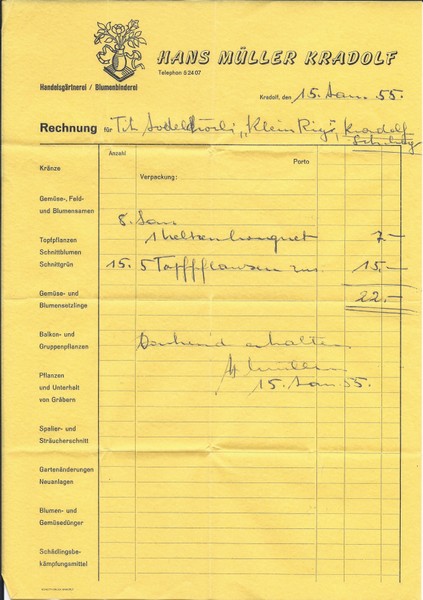 HANS MÜLLER KRADOLF
Telephon 5 24 07
Handelsgärtnerei / Blumenbinderei
Kradolf, den 15. Jan. 55.
Rechnung für Tit. Jodelchörli „Klein Rigi", Kradolf-
Anzahl
Porto
Verpackung:
Kränze
Gemüse-, Feld-
und Blumensamen
8. Jan.
Topfpflanzen 1 Nelkenbouquet 7.—
Schnittblumen
Schnittgrün 15. 5 Topfpflanzen zus. 15.—
Gemüse- und
Blumensetzlinge
22.—
Balkon- und
Gruppenpflanzen
Dankend erhalten
H. Müller
Pflanzen
und Unterhalt
von Gräbern
15. Jan. 55.
Spalier- und
Sträucherschnitt
Gartenänderungen
Neuanlagen
Blumen- und
Gemüsedünger
Schädlingsbe-
kämpfungsmittel